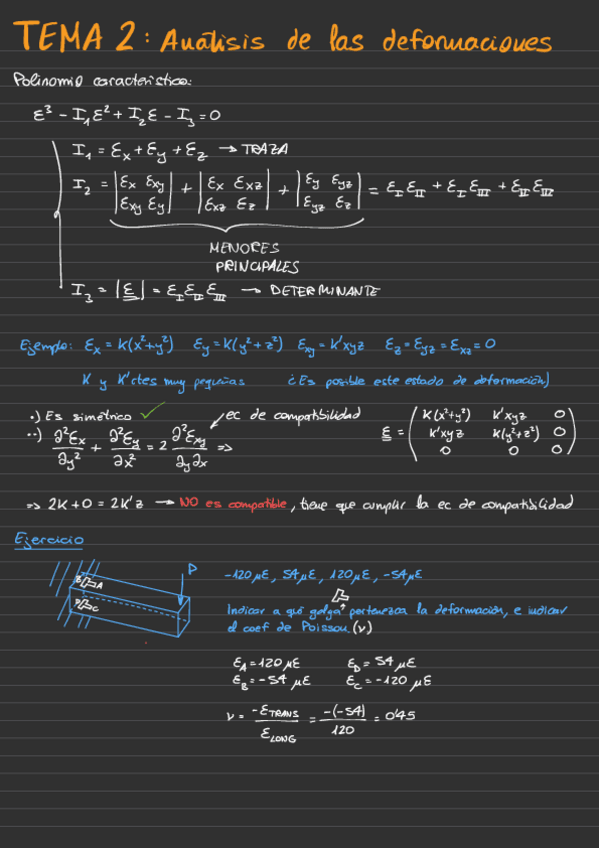 TEMA 2: Análisis de las deformaciones
Polinomio característico:
ε³ - I₁ε² + I₂ε - I₃ = 0
I₁ = εx + εy + εz → TRAZA
I₂ = |εx εxy; εxy εy| + |εx εxz; εxz εz| + |εy εyz; εyz εz| = εI εII + εI εIII + εII εIII
MENORES
PRINCIPALES
I₃ = |ε| = εI εII εIII → DETERMINANTE
Ejemplo: εx = K(x²+y²) εy = K(y²+z²) εxy = K'xyz εz = εyz = εxz = 0
K y K' ctes muy pequeñas ¿Es posible este estado de deformación?
·) Es simétrico ✓
··) ∂²εx/∂y² + ∂²εy/∂x² = 2 ∂²εxy/∂y∂x ⇒ ec de compatibilidad
ε = (K(x²+y²) K'xyz 0; K'xyz K(y²+z²) 0; 0 0 0)
⇒ 2K + 0 = 2K'z → NO es compatible, tiene que cumplir la ec de compatibilidad
Ejercicio
B A
D C
P
-120 με, 54 με, 120 με, -54 με
Indicar a qué galga pertenezca la deformación, e indicar
el coef de Poisson (ν)
εA = 120 με εD = 54 με
εB = -54 με εC = -120 με
ν = -εTRANS/εLONG = -(-54)/120 = 0'45